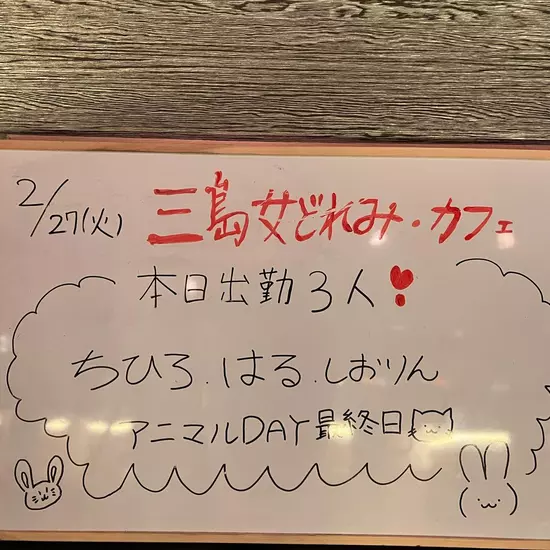 2/27(火) 三島女どれみ・カフェ
本日出勤3人❣
ちひろ.はる.しおりん
アニマルDAY最終日